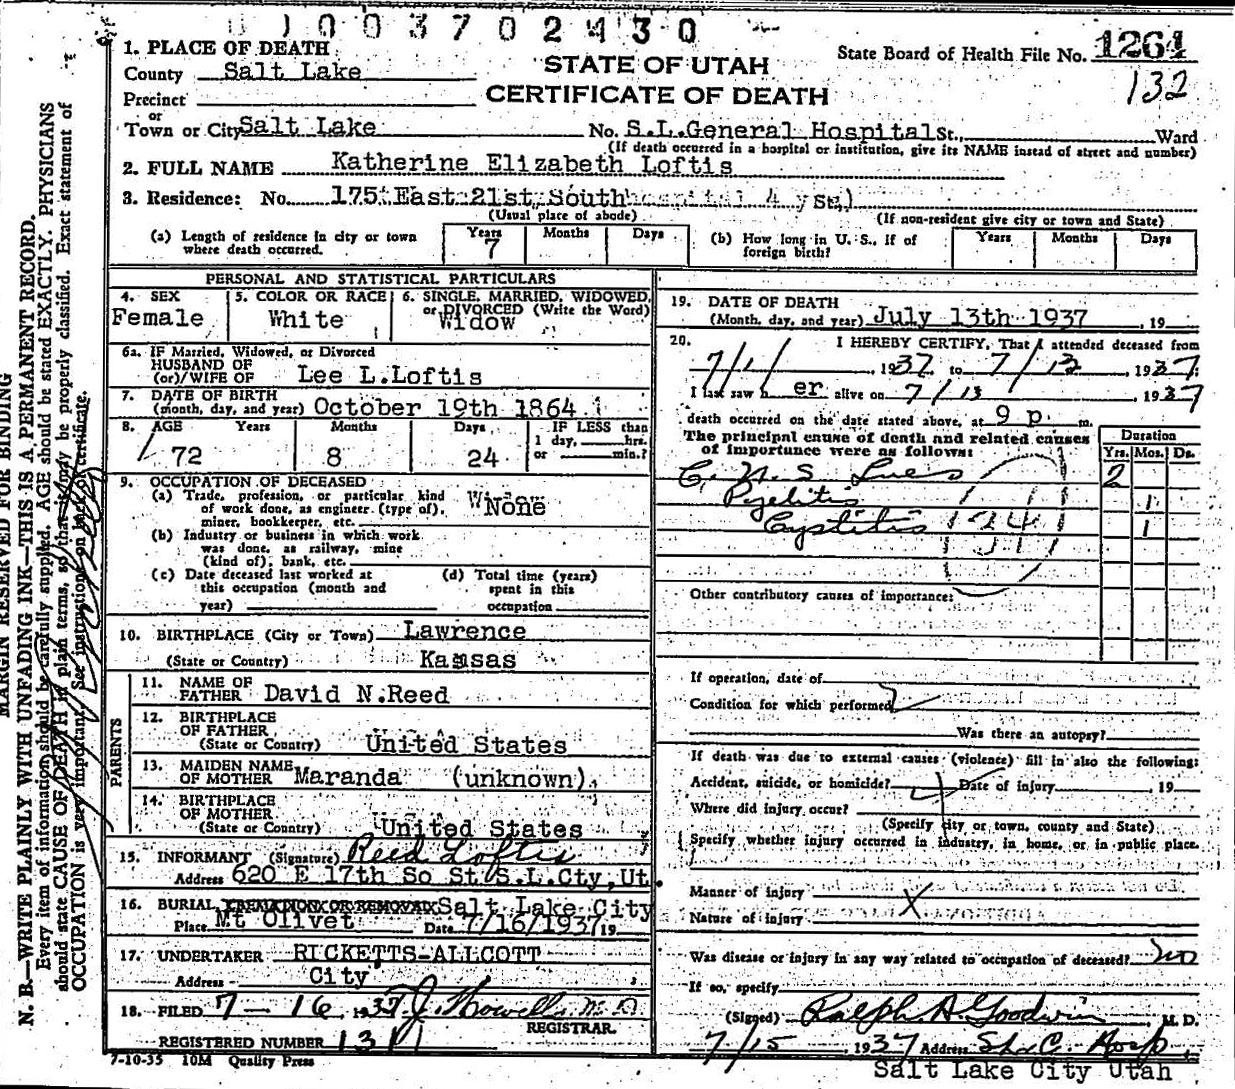 1003702430
1. PLACE OF DEATH
County Salt Lake
Precinct
or
Town or City Salt Lake
STATE OF UTAH
CERTIFICATE OF DEATH
State Board of Health File No. 1264
132
No. S.L.General Hospital St., Ward
(If death occurred in a hospital or institution, give its NAME instead of street and number)
2. FULL NAME Katherine Elizabeth Loftis
3. Residence: No. 175 East 21st South St.)
(Usual place of abode) (If non-resident give city or town and State)
(a) Length of residence in city or town where death occurred. Years 7 Months Days
(b) How long in U. S., if of foreign birth? Years Months Days
PERSONAL AND STATISTICAL PARTICULARS
4. SEX 5. COLOR OR RACE 6. SINGLE, MARRIED, WIDOWED, or DIVORCED (Write the Word)
Female White Widow
6a. IF Married, Widowed, or Divorced
HUSBAND OF
(or)/WIFE OF Lee L.Loftis
7. DATE OF BIRTH
(month, day, and year) October 19th 1864
8. AGE Years Months Days IF LESS than
1 day, hrs.
or min.?
72 8 24
9. OCCUPATION OF DECEASED
(a) Trade, profession, or particular kind
of work done, as engineer (type of),
miner, bookkeeper, etc. None
(b) Industry or business in which work
was done, as railway, mine
(kind of), bank, etc.
(c) Date deceased last worked at
this occupation (month and
year)
(d) Total time (years)
spent in this
occupation
10. BIRTHPLACE (City or Town) Lawrence
(State or Country) Kansas
PARENTS
11. NAME OF
FATHER David N.Reed
12. BIRTHPLACE
OF FATHER
(State or Country) United States
13. MAIDEN NAME
OF MOTHER Maranda (unknown)
14. BIRTHPLACE
OF MOTHER
(State or Country) United States
15. INFORMANT (Signature) Reed Loftis
Address 620 E 17th So St S.L.Cty,Ut.
16. BURIAL, CREMATION OR REMOVAL Salt Lake City
Place Mt Olivet Date 7/16/1937 19
17. UNDERTAKER RICKETTS-ALLCOTT
Address City
18. FILED 7-16 1937 M D
REGISTRAR.
REGISTERED NUMBER 1311
7-10-35 10M Quality Press
19. DATE OF DEATH
(Month, day, and year) July 13th 1937, 19
20. I HEREBY CERTIFY, That I attended deceased from
7/1/, 1937 to 7/13, 1937
I last saw her alive on 7/13, 1937
death occurred on the date stated above, at 9 p m.
The principal cause of death and related causes
of importance were as follows:
Duration
Yrs. Mos. Ds.
C. N. S. Lues 2
Pyelitis 1
Cystitis 1
34
Other contributory causes of importance:
If operation, date of
Condition for which performed
Was there an autopsy?
If death was due to external causes (violence) fill in also the following:
Accident, suicide, or homicide? Date of injury , 19
Where did injury occur?
(Specify city or town, county and State)
Specify whether injury occurred in industry, in home, or in public place.
Manner of injury
Nature of injury
Was disease or injury in any way related to occupation of deceased? no
If so, specify
(Signed) Ralph A Goodwin M. D.
7/15, 1937 Address
Salt Lake City Utah
MARGIN RESERVED FOR BINDING
N. B.—WRITE PLAINLY WITH UNFADING INK—THIS IS A PERMANENT RECORD.
Every item of information should be carefully supplied. AGE should be stated EXACTLY. PHYSICIANS
should state CAUSE OF DEATH in plain terms, so that it may be properly classified. Exact statement of
OCCUPATION is very important. See instructions on back of certificate.